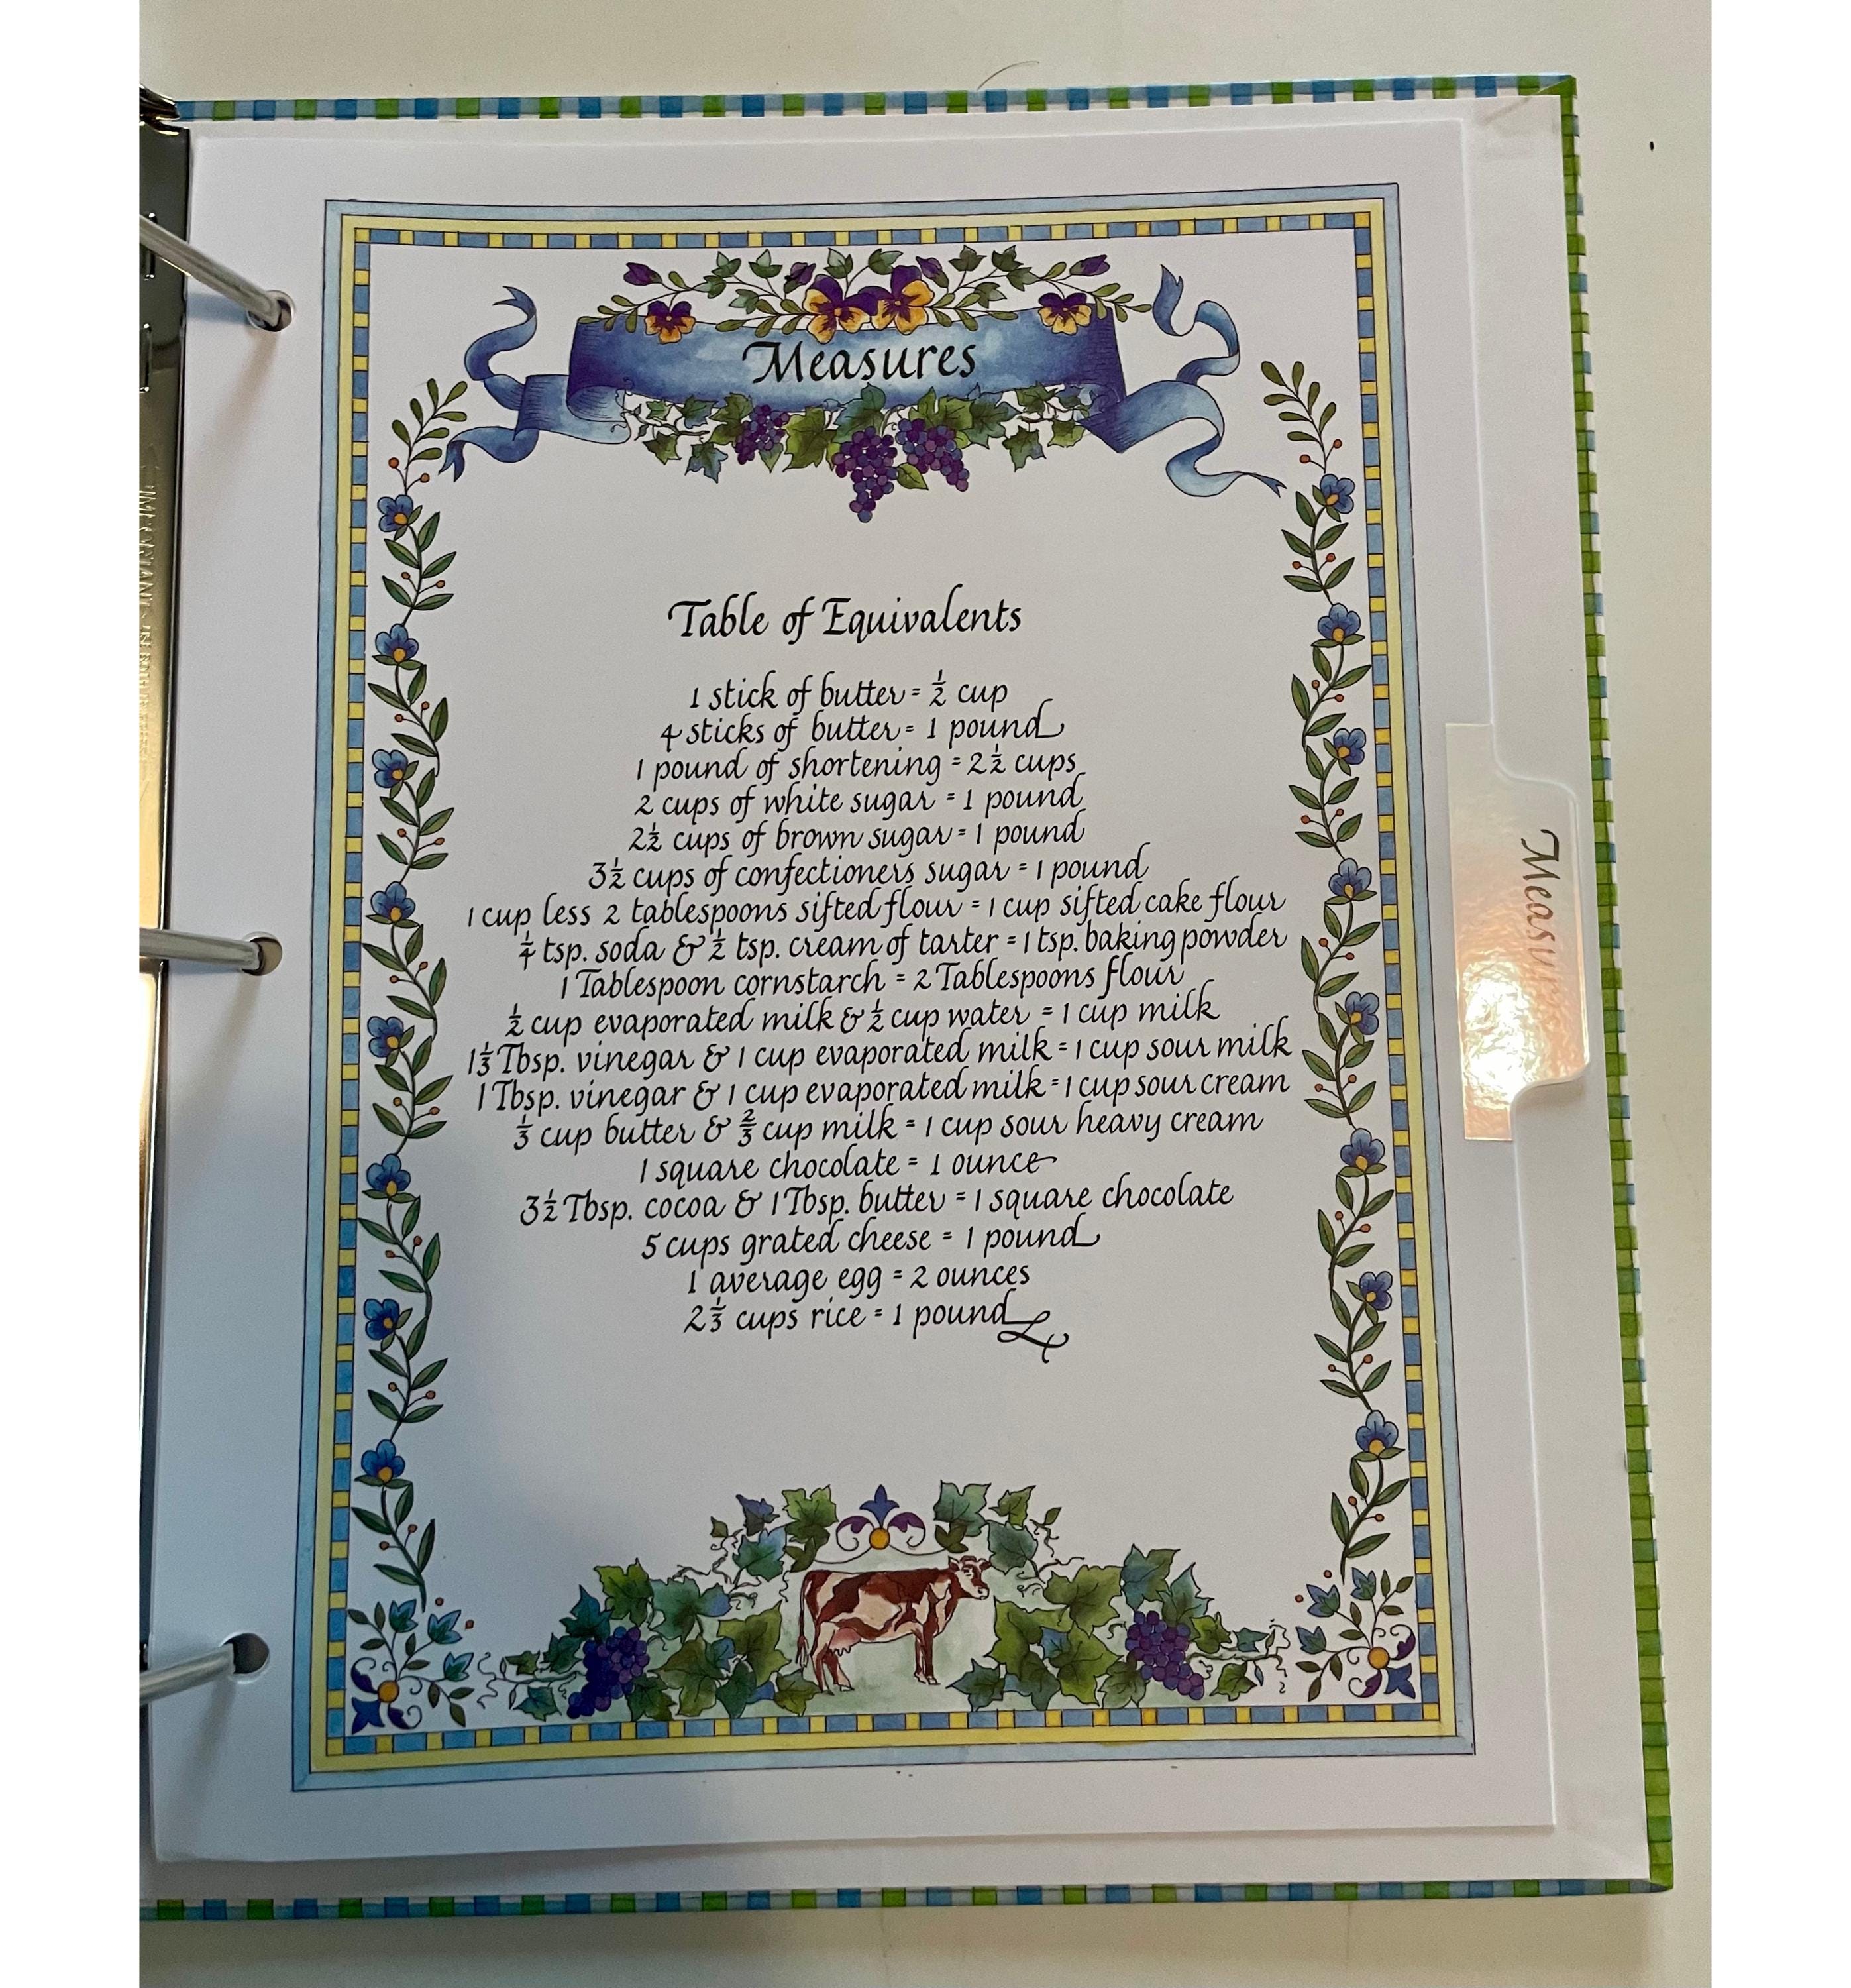 Measures
Table of Equivalents
1 stick of butter = ½ cup
4 sticks of butter = 1 pound
1 pound of shortening = 2½ cups
2 cups of white sugar = 1 pound
2½ cups of brown sugar = 1 pound
3½ cups of confectioners sugar = 1 pound
1 cup less 2 tablespoons sifted flour = 1 cup sifted cake flour
¼ tsp. soda & ½ tsp. cream of tarter = 1 tsp. baking powder
1 Tablespoon cornstarch = 2 Tablespoons flour
½ cup evaporated milk & ½ cup water = 1 cup milk
1⅓ Tbsp. vinegar & 1 cup evaporated milk = 1 cup sour milk
1 Tbsp. vinegar & 1 cup evaporated milk = 1 cup sour cream
⅓ cup butter & ⅔ cup milk = 1 cup sour heavy cream
1 square chocolate = 1 ounce
3½ Tbsp. cocoa & 1 Tbsp. butter = 1 square chocolate
5 cups grated cheese = 1 pound
1 average egg = 2 ounces
2⅓ cups rice = 1 pound
Measures